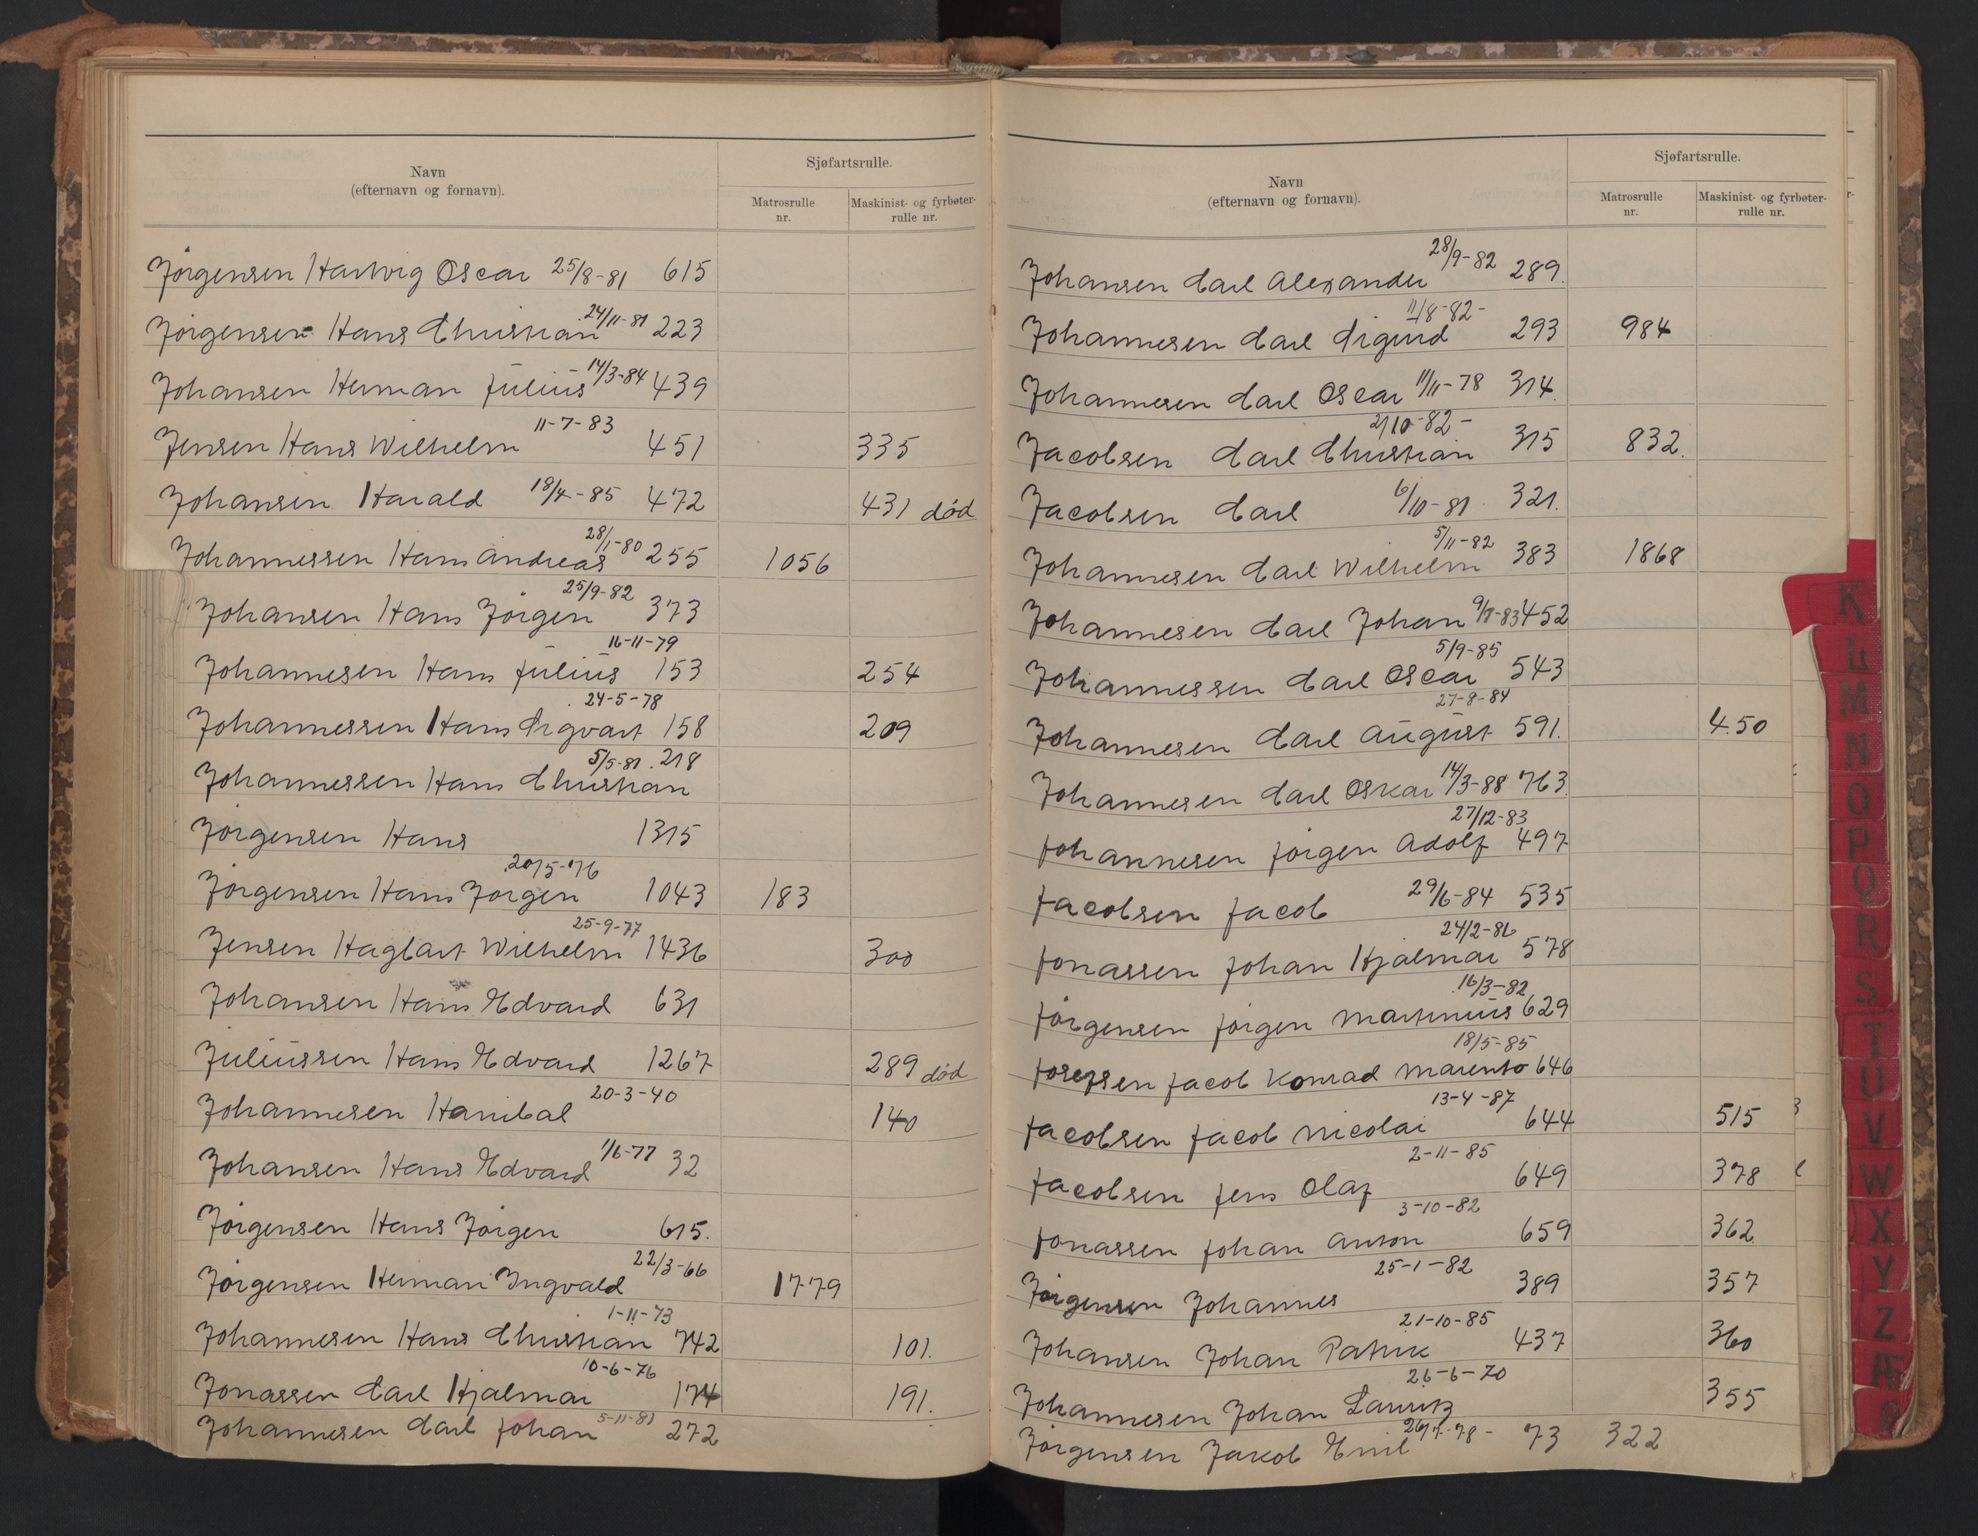 Navn
(efternavn og fornavn).
Sjøfartsrulle.
Matrosrulle nr.
Maskinist- og fyrbøter-rulle nr.
Jørgensen Hartvig Oscar 25/8-81 615
Jørgensen Hans Christian 24/11-81 223
Johansen Herman Julius 14/3-84 439
Jensen Hans Wilhelm 11-7-83 451 335
Johansen Harald 18/4-85 472 431 død
Johannessen Hans Andreas 28/1-80 255 1056
Johansen Hans Jørgen 25/9-82 373
Johannesen Hans Julius 16-11-79 153 254
Johannessen Hans Sigvart 24-5-78 158 209
Johannessen Hans Christian 5/5-81 218
Jørgensen Hans 1315
Jørgensen Hans Jørgen 20/5-76 1043 183
Jensen Hagbart Wilhelm 25-9-77 1436 300
Johansen Hans Edvard 631
Juliussen Hans Edvard 1267 289 død
Johannesen Hanibal 20-3-40 140
Johansen Hans Edvard 1/6-77 32
Jørgensen Hans Jørgen 615.
Jørgensen Herman Ingvald 22/3-66 1779
Johannesen Hans Christian 1-11-73 742 101.
Jonassen Carl Hjalmar 10-6-76 174 191.
Johannesen Carl Johan 5-11-81 272
Navn
(efternavn og fornavn).
Sjøfartsrulle.
Matrosrulle nr.
Maskinist- og fyrbøter-rulle nr.
Johansen Carl Alexander 28/9-82 289.
Johannesen Carl Sigurd 11/8-82- 293 984
Johannesen Carl Oscar 11/11-78 314.
Jacobsen Carl Christian 2/10-82- 315 832.
Jacobsen Carl 6/10-81 321.
Johannesen Carl Wilhelm 5/11-82 383 1868
Johannesen Carl Johan 9/8-83 452
Johannessen Carl Oscar 5/9-85 543
Johannesen Carl August 27-8-84 591. 450
Johannesen Carl Oskar 14/3-88 763.
Johannesen Jørgen Adolf 27/12-83 497
Jacobsen Jacob 29/6-84 535
Jonassen Johan Hjalmar 24/2-86 578
Jørgensen Jørgen Martinius 16/3-82 629
Josefsen Jacob Konrad 18/5-85 646
Jacobsen Jacob Nicolai 13-4-87 644 515
Jacobsen Jens Olaf 2-11-85 649 378
Jonassen Johan Anton 3-10-82 659 362
Jørgensen Johannes 25-1-82 389 357
Johansen Johan Patrik 21-10-85 437 360
Johannesen Johan Lauritz 26-6-70 355
Jørgensen Jakob Emil 73 322
K
L
M
N
O
P
Q
R
S
T
U
V
W
X
Y
Z
Æ